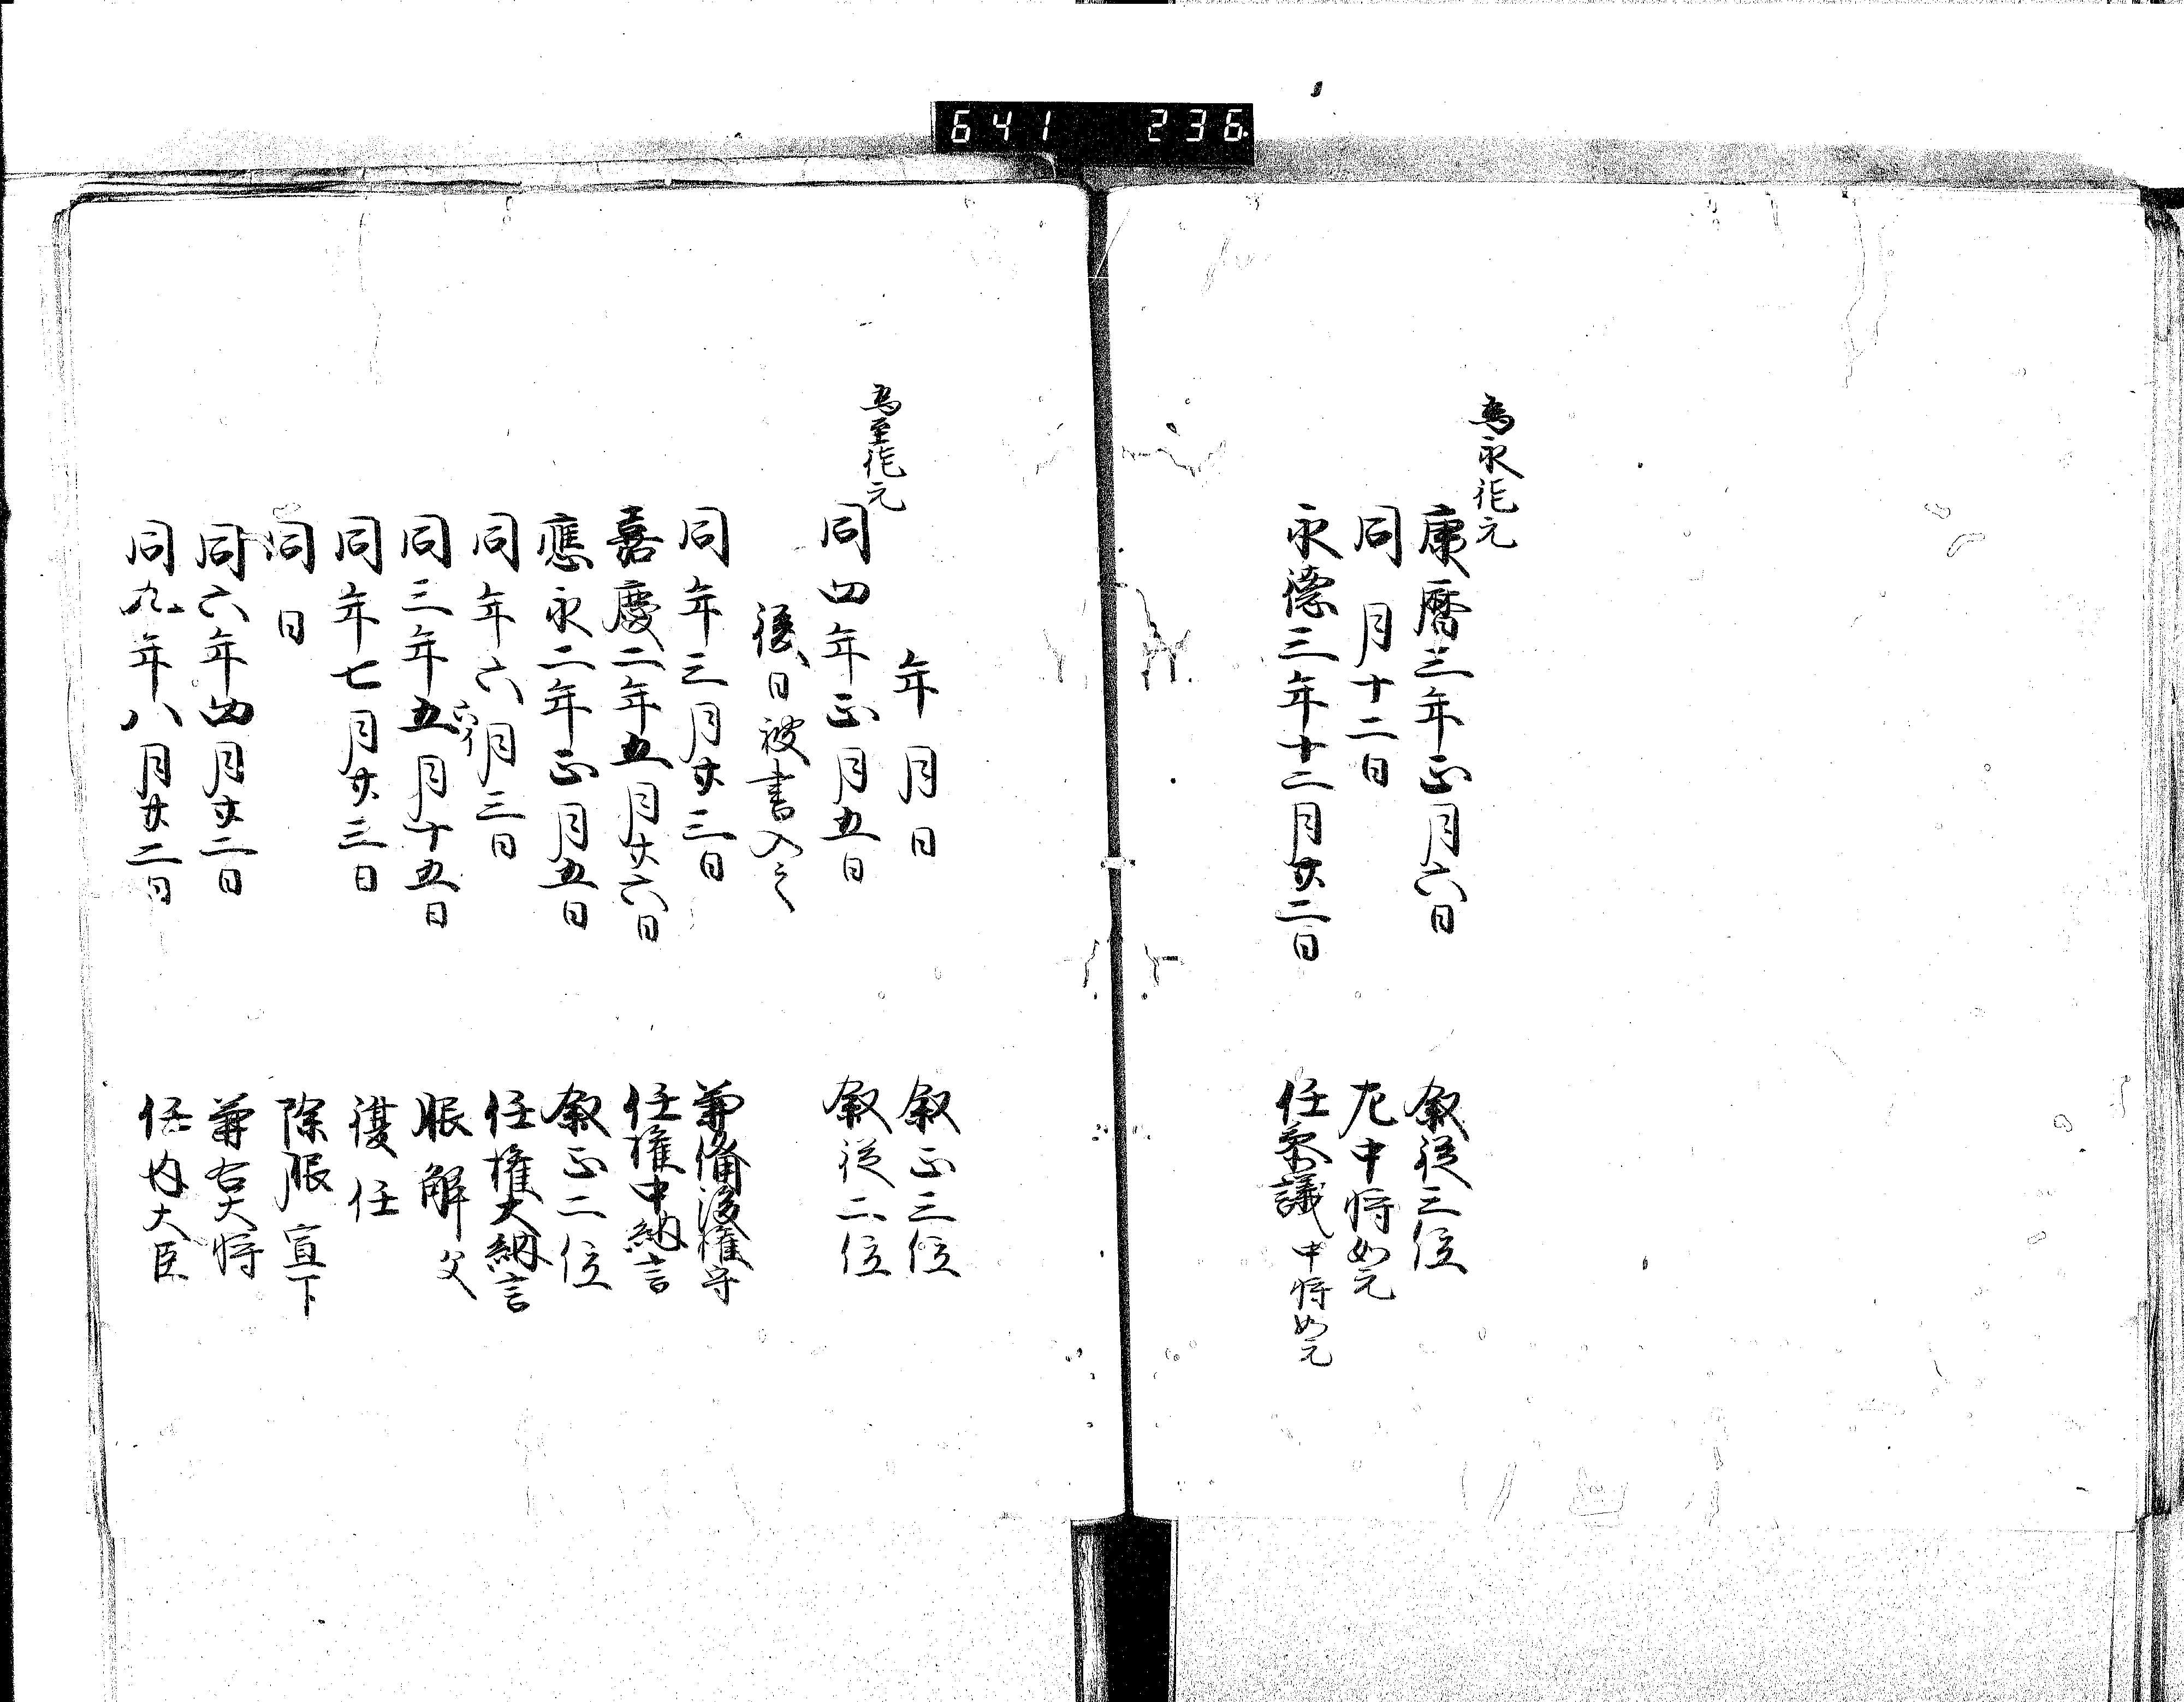 641 236
為永作元
康暦三年正月六日 叙従三位
同 月十二日 左中将如元
永徳三年十二月廿二日 任参議中将如元
年月日 叙正三位
為至作元
同四年正月五日 叙従二位
後日被書入之
同年三月廿三日 兼備後権守
嘉慶二年五月廿六日 任権中納言
應永二年正月五日 叙正二位
同年六月三日 任権大納言
同三年五月十五日 服解父
同年七月廿三日 復任
同日 除服宣下
同六年四月廿二日 兼右大将
同九年八月廿二日 任内大臣